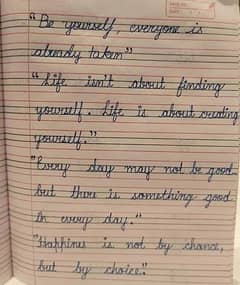 "Be yourself, everyone is
already taken"
"Life isn't about finding
yourself. Life is about creating
yourself."
"Every day may not be good
but there is something good
in every day."
"Happines is not by chance,
but by choice."